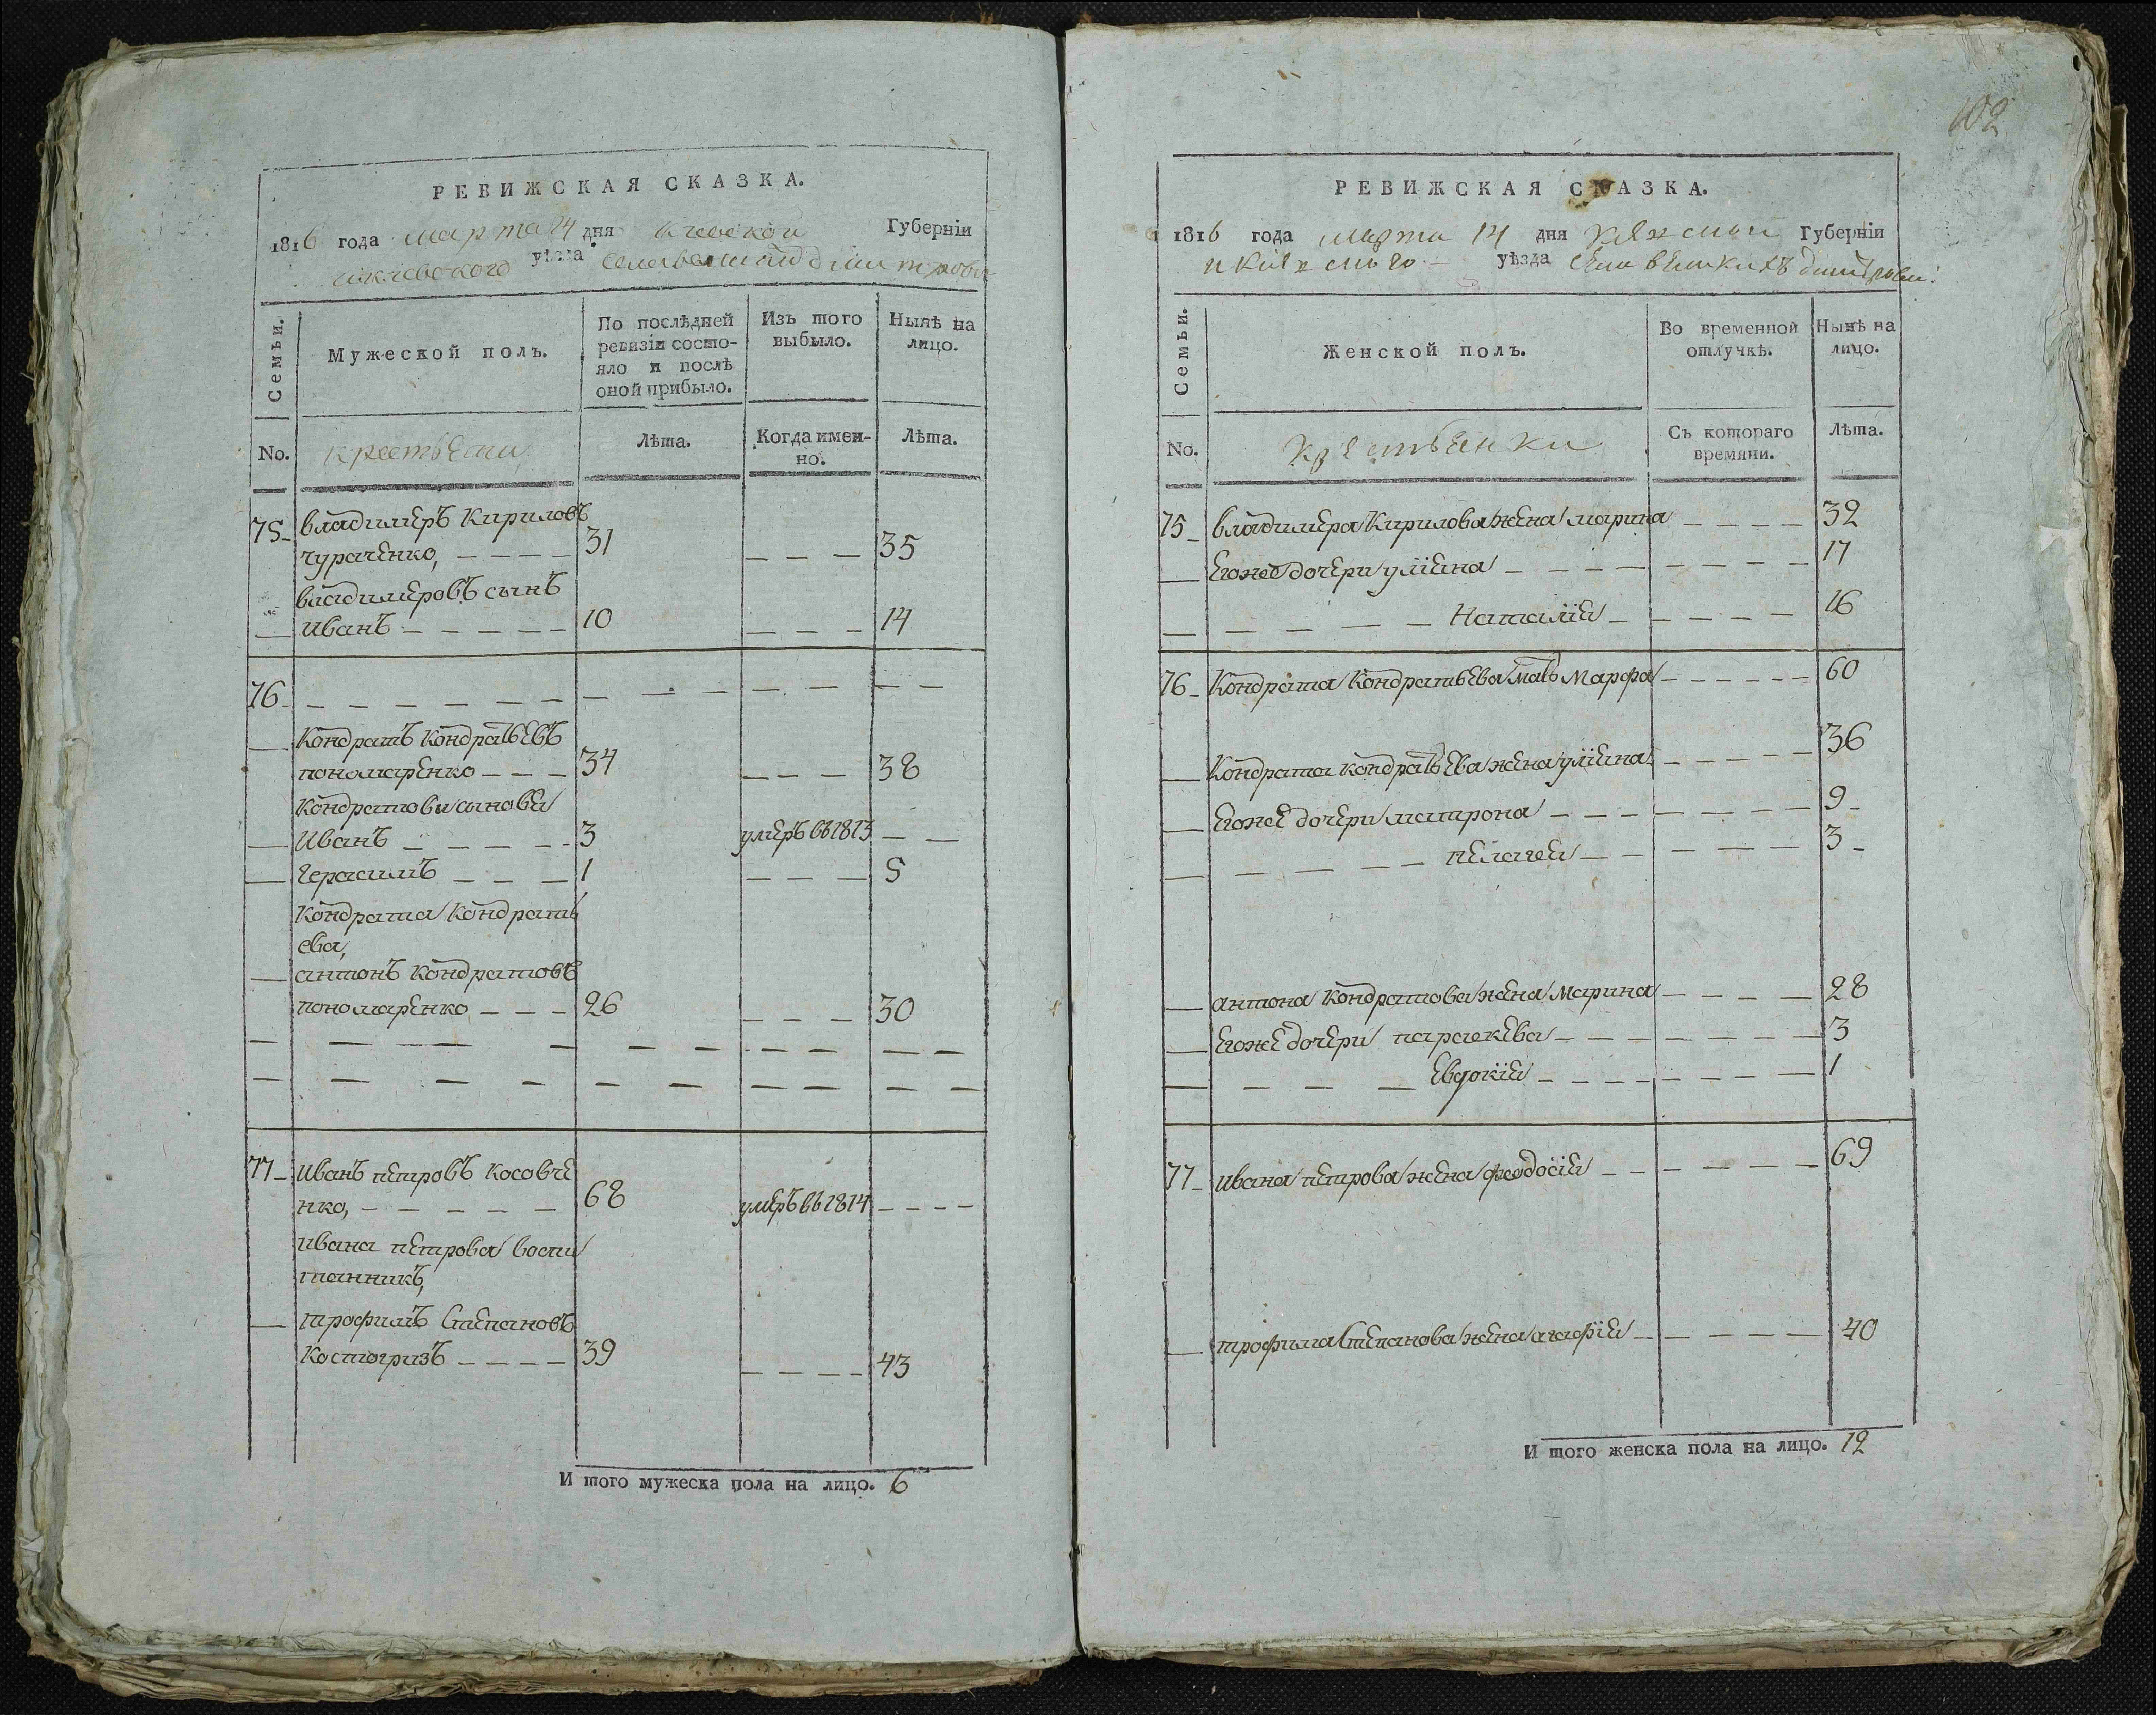 РЕВИЖСКАЯ СКАЗКА.
1816 года марта 14 дня киевской Губерніи
икиевского уѣзда села великихъ дмитровъ
Семьи.
Мужеской полъ.
По послѣдней ревизіи состояло и послѣ оной прибыло.
Изъ того выбыло.
Нынѣ на лицо.
No.
крестьяни
Лѣта.
Когда именно.
Лѣта.
75 владимеръ Кириловъ
чураченко, 31 35
владимеровъ сынъ
иванъ 10 14
76
Кондратъ кондратьевъ
пономаренко 34 38
Кондратовы сыновья
Иванъ 3 умеръ въ 1813
Герасимъ 1 5
Кондрата Кондрать
ева,
антонъ Кондратовъ
пономаренко 26 30
77 иванъ петровъ косовче
нко, 68 умеръ въ 1814
ивана петрова воспи
танникъ,
трофимъ Степановъ
Костогризъ 39 43
И того мужеска пола на лицо. 6
102
РЕВИЖСКАЯ СКАЗКА.
1816 года марта 14 дня киевской Губерніи
икиевского уѣзда села великихъ дмитровъ
Семьи.
Женской полъ.
Во временной отлучкѣ.
Нынѣ на лицо.
No.
крестьянки
Съ котораго времяни.
Лѣта.
75 владимера Кирилова жена марина 32
Егоже дочери улияна 17
Наталия 16
76 Кондрата Кондратьева мать Марфа 60
Кондрата кондратьева жена улияна 36
Егоже дочери матрона 9
пелагея 3
антона Кондратова жена Марина 28
Егоже дочери параскева 3
Евдокия 1
77 ивана петрова жена феодосия 69
трофима Степанова жена агафия 40
И того женска пола на лицо. 12